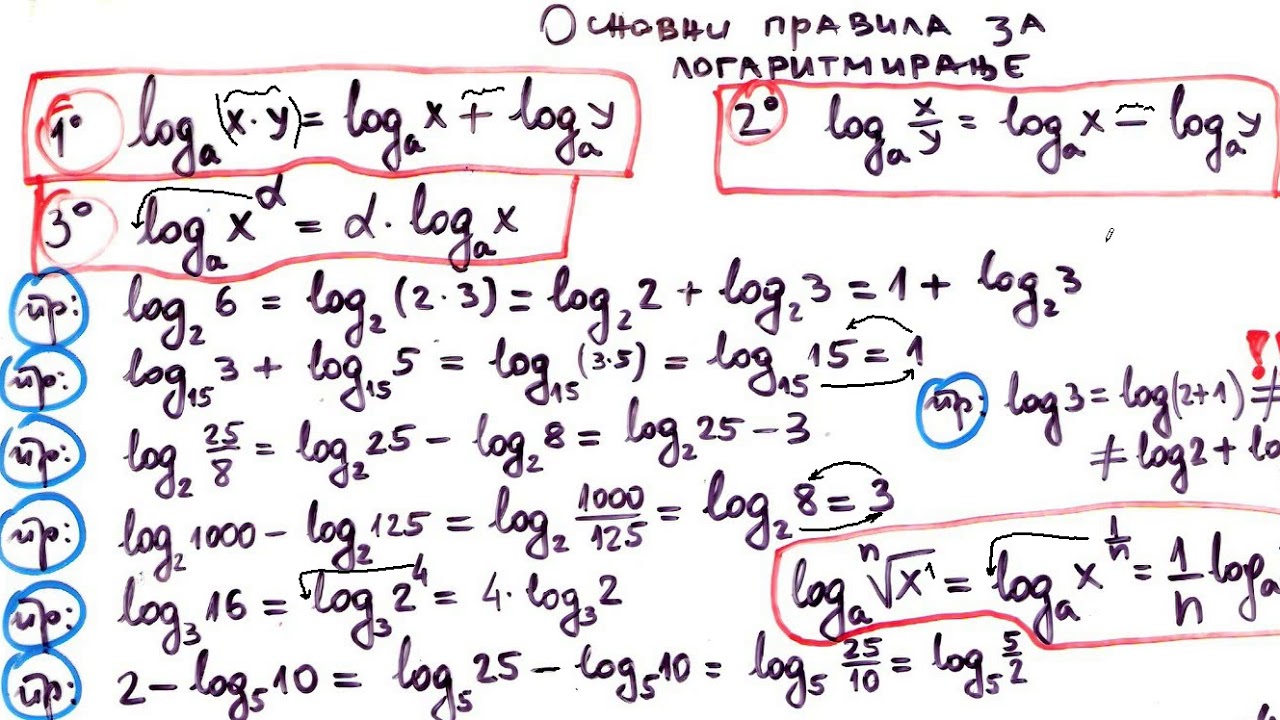 Основни правила за
логаритмирање
1° logₐ(x·y) = logₐx + logₐy
2° logₐ x/y = logₐx − logₐy
3° logₐx^α = α·logₐx
пр: log₂6 = log₂(2·3) = log₂2 + log₂3 = 1 + log₂3
пр: log₁₅3 + log₁₅5 = log₁₅(3·5) = log₁₅15 = 1
пр: log3 = log(2+1) ≠ !!
≠ log2 + lo
пр: log₂ 25/8 = log₂25 − log₂8 = log₂25 − 3
пр: log₂1000 − log₂125 = log₂ 1000/125 = log₂8 = 3
logₐ ⁿ√x¹ = logₐx^(1/n) = 1/n logₐ
пр: log₃16 = log₃2⁴ = 4·log₃2
пр: 2 − log₅10 = log₅25 − log₅10 = log₅ 25/10 = log₅ 5/2